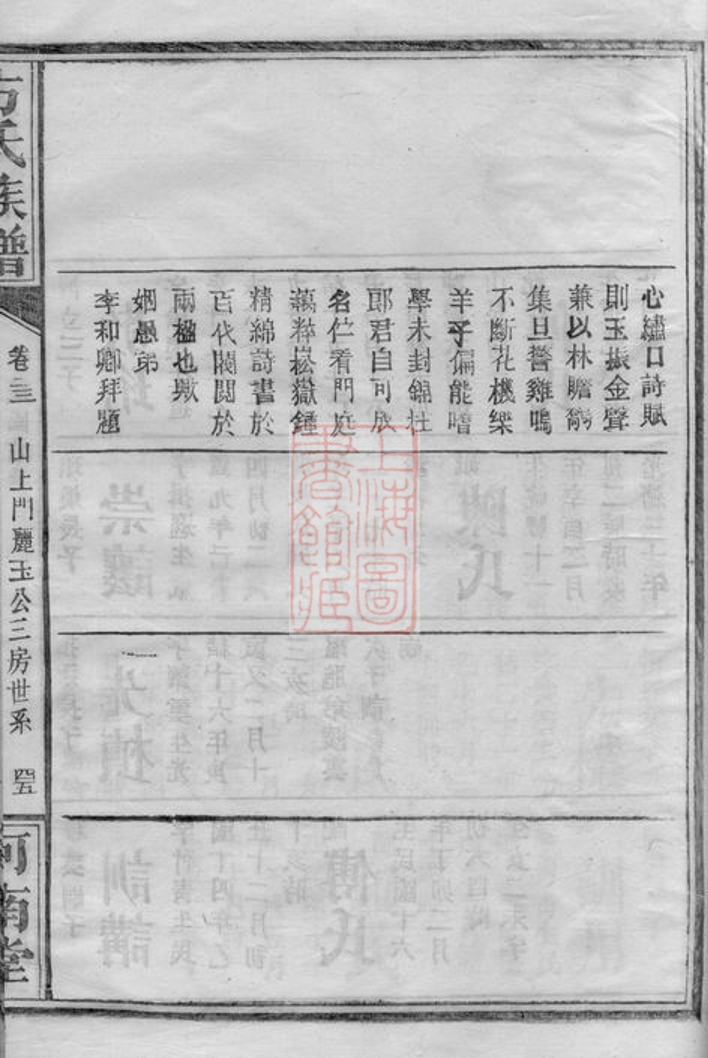 心繡口詩賦
則玉振金聲
兼以林瞻鵷
集旦警雞鳴
不斷花機樂
羊子偏能嗜
學未封錦杜
郎君自可成
名伫看門庭
藹粹崧嶽鍾
精綿詩書於
百代閥閱於
兩楹也歟
姻愚弟
李和卿拜題
方氏族譜
卷三 山上門麗玉公三房世系 四五
河南堂
上海圖
書館藏